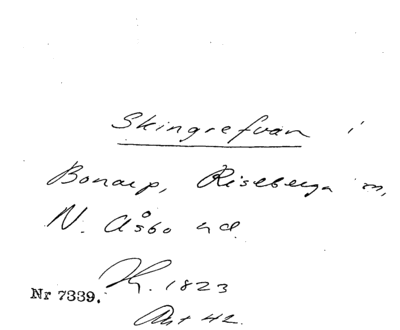 Skingrefvan i
Bonarp, Riseberga sn,
N. Åsbo hd.
Nr 7339. Kr. 1823
Akt 42.